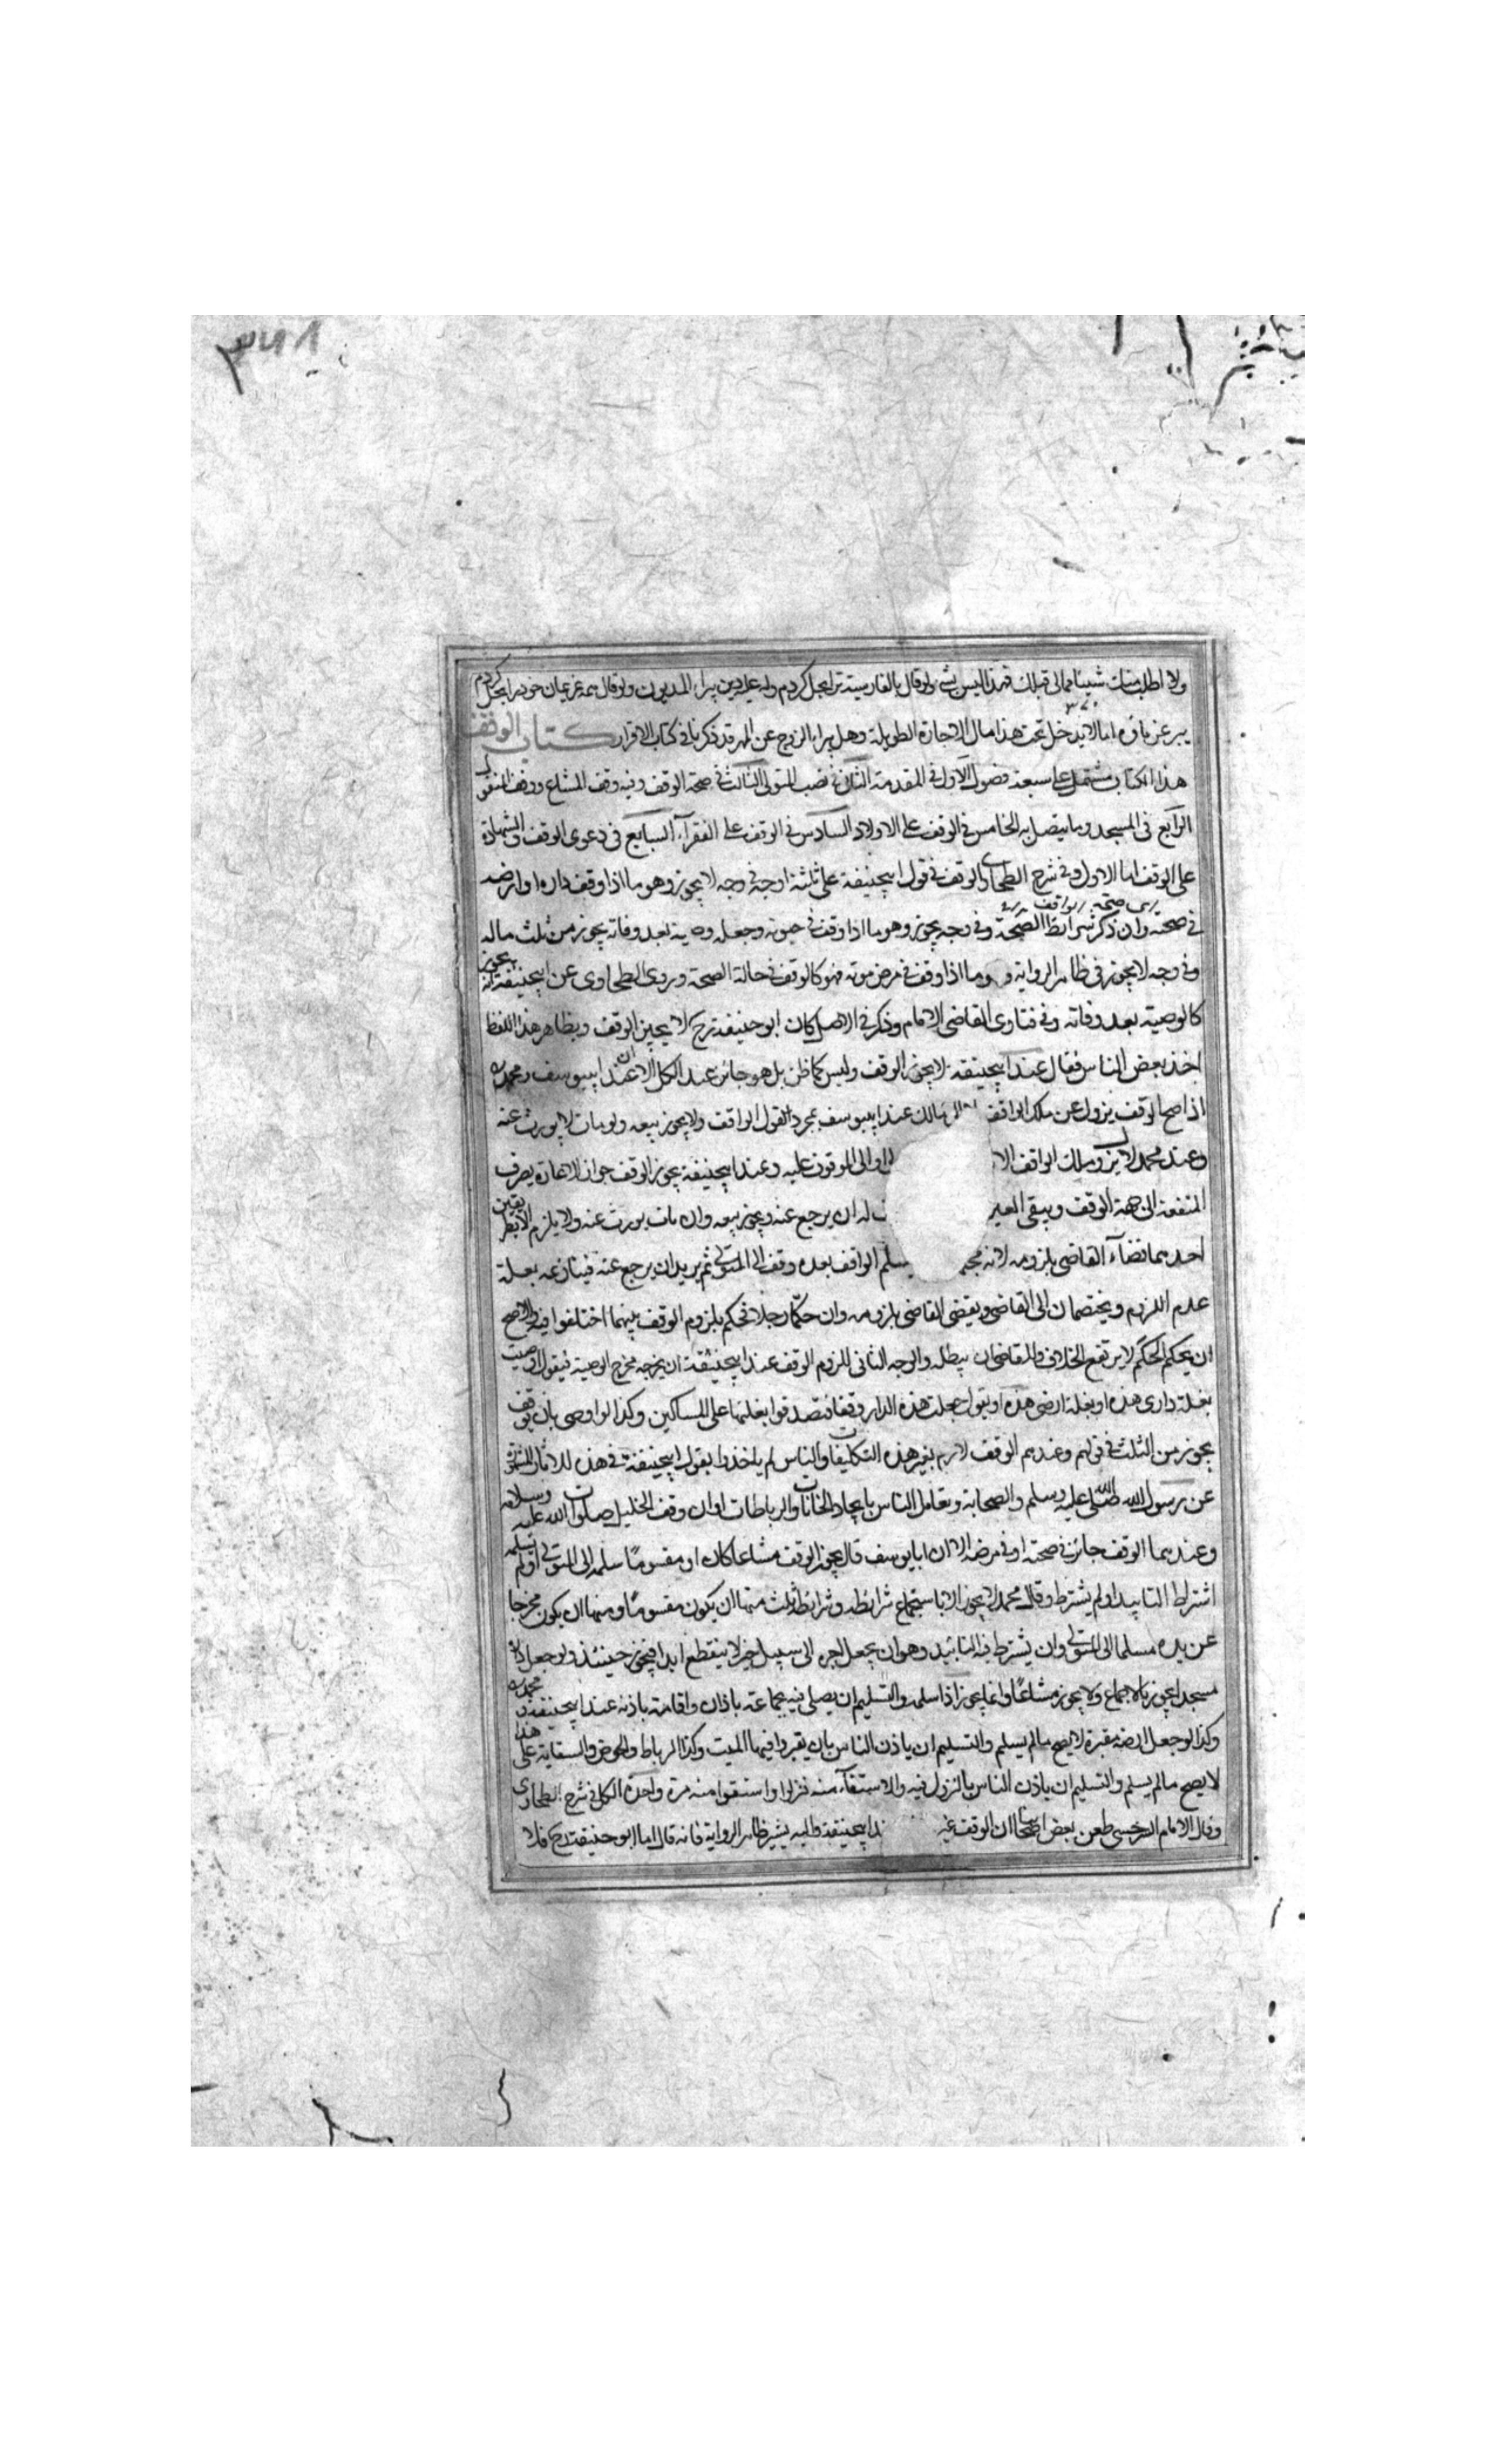 ولا اطلب منك شيئا مما لي قبلك فهذا ليس بشئ ولو قال بالفارسية ترا بحل كردم وله عليه دين يبراء المديون ولو قال همه غريمان خود را بحل كردم
يبرء غرماؤه اما لا يدخل تحت هذا مال الاجارة الطويلة وهل يبراء الزوج عن المهر قد ذكرنا في كتاب الاقرار كتاب الوقف
هذا الكتاب مشتمل على سبعة فصول الاول في المقدمة الثاني في نصب المتولي الثالث في صحة الوقف وفيه وقف المشاع ووقف المنقول
الرابع في المسجد وما يتصل به الخامس في الوقف على الاولاد السادس في الوقف على الفقرآء السابع في دعوى الوقف والشهادة
على الوقف اما الاول وفي شرح الطحاوي الوقف في قول ابيحنيفة على ثلثة اوجه في وجه لا يجوز وهو ما اذا وقف داره او ارضه
في صحته وان ذكر شرائط الصحة وفي وجه يجوز وهو ما اذا وقف في حيوته وجعله وصية بعد وفاته يجوز من ثلث ماله
وفي وجه لا يجوز في ظاهر الرواية و وما اذا وقف في مرض موته فهو كالوقف في حالة الصحة وروى الطحاوى عن ابيحنيفة انه يجوز
كالوصية بعد وفاته وفي فتاوى القاضي الامام وذكر في الاصل كان ابو حنيفة رح لا يجيز الوقف وبظاهر هذا اللفظ
اخذ بعض الناس فقال عند ابيحنيفة لا يجوز الوقف وليس كما ظن بل هو جائز عند الكل الا ان عند ابييوسف ومحمد
اذا صح الوقف يزول عن ملك الواقف مالك عند ابييوسف بمجرد القول الواقف ولا يجوز بيعه ولو مات لا يورث عنه
وعند محمد لا يزول ملك الواقف الا الى الموقوف عليه وعند ابيحنيفة يجوز الوقف جواز الاعارة يصرف
المنفعة الى جهة الوقف ويبقى العين له ان يرجع عنه ويجوز بيعه وان مات يورث عنه ولا يلزم الا بطريقين
احدهما قضآء القاضي بلزومه لانه يسلم الواقف بعده وقف الى المتولي ثم يريد ان يرجع عنه فينازعه بعلة
عدم اللزوم ويختصمان الى القاضي ويقضي القاضي بلزومه وان حكما رجلا فحكم بلزوم الوقف بينهما اختلفوا فيه والاصح
ان بحكم الحكم لا يرتفع الخلاف والمقاضي ان يبطله والوجه الثاني للزوم الوقف عند ابيحنيفة ان يخرجه مخرج الوصية فيقول اوصيت
بغلة داري هذه او بغلة ارضي هذه او يقول جعلت هذه الدار وقفا فتصدقوا بغلتها على المساكين وكذا لو اوصى بان يوقف
يجوز من الثلث في قولهم وعندهم الوقف لازم بغير هذه التكليفات والناس لم ياخذوا بقول ابيحنيفة في هذه للاثار المشهورة
عن رسول الله صلى الله عليه وسلم والصحابة وتعامل الناس باتخاد الخانات والرباطات اوان وقف الخليل صلوات الله عليه وسلامه
وعندهما الوقف جائز في صحته او في مرضه الا ان ابا يوسف قال يجوز الوقف مشاعا كان او مقسوما سلمه الى المتولي او لم يسلمه
اشترط التابيد او لم يشترط وقال محمد لا يجوز الا باستجماع شرائطه وشرائط ثلث منها ان يكون مقسوما ومنها ان يكون مخرجا
عن يده مسلما الى المتولي وان يشترط فيه التابيد وهو ان يجعل اجره الى سبيل خير لا ينقطع ابدا فيجوز حينئذ ولو جعل داره
مسجدا يجوز بالاجماع ولا يجوز مشاعا وانما يجوز اذا سلمه والتسليم ان يصلي فيه بجماعة باذان واقامة باذنه عند ابيحنيفة ومحمد
وكذا لو جعل ارضه مقبرة لا يصح ما لم يسلم والتسليم ان ياذن الناس بان يقبروا فيها الميت وكذا الرباط والحوض والسقاية على هذا
لا يصح ما لم يسلم والتسليم ان ياذن الناس بالنزول فيه والاستقآء منه فنزلوا واستقوا منه مرة واحدة الكل في شرح الطحاوى
وقال الامام السرخسي طعن بعض اصحابنا ان الوقف غير ابيحنيفة واليه يشير ظاهر الرواية فانه قال اما ابو حنيفة رح فلا